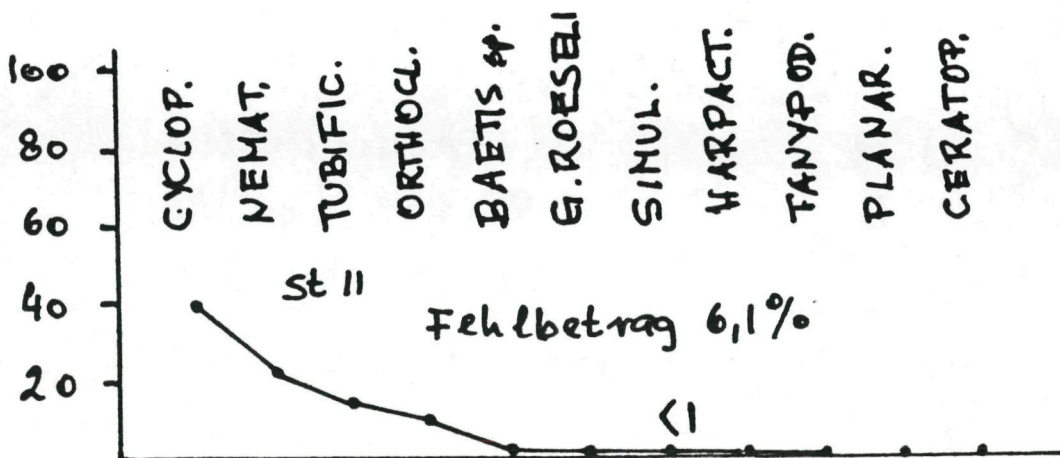 100
80
60
40
20
CYCLOP.
NEMAT.
TUBFIC.
ORTHOCL.
BAETIS sp.
G.ROESELI
SIMUL.
HARPACT.
TANYPOD.
PLANAR.
CERATOP.
St II
Fehlbetrag 6,1%
<1